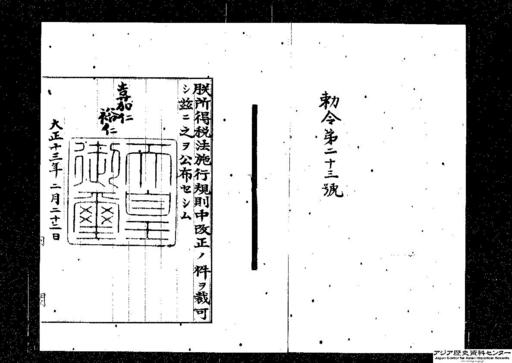 勅令第二十三號
朕所得税法施行規則中改正ノ件ヲ裁可
シ茲ニ之ヲ公布セシム
嘉仁
裕仁
天皇
御璽
大正十三年二月二十二日
内閣
アジア歴史資料センター
Japan Center for Asian Historical Records